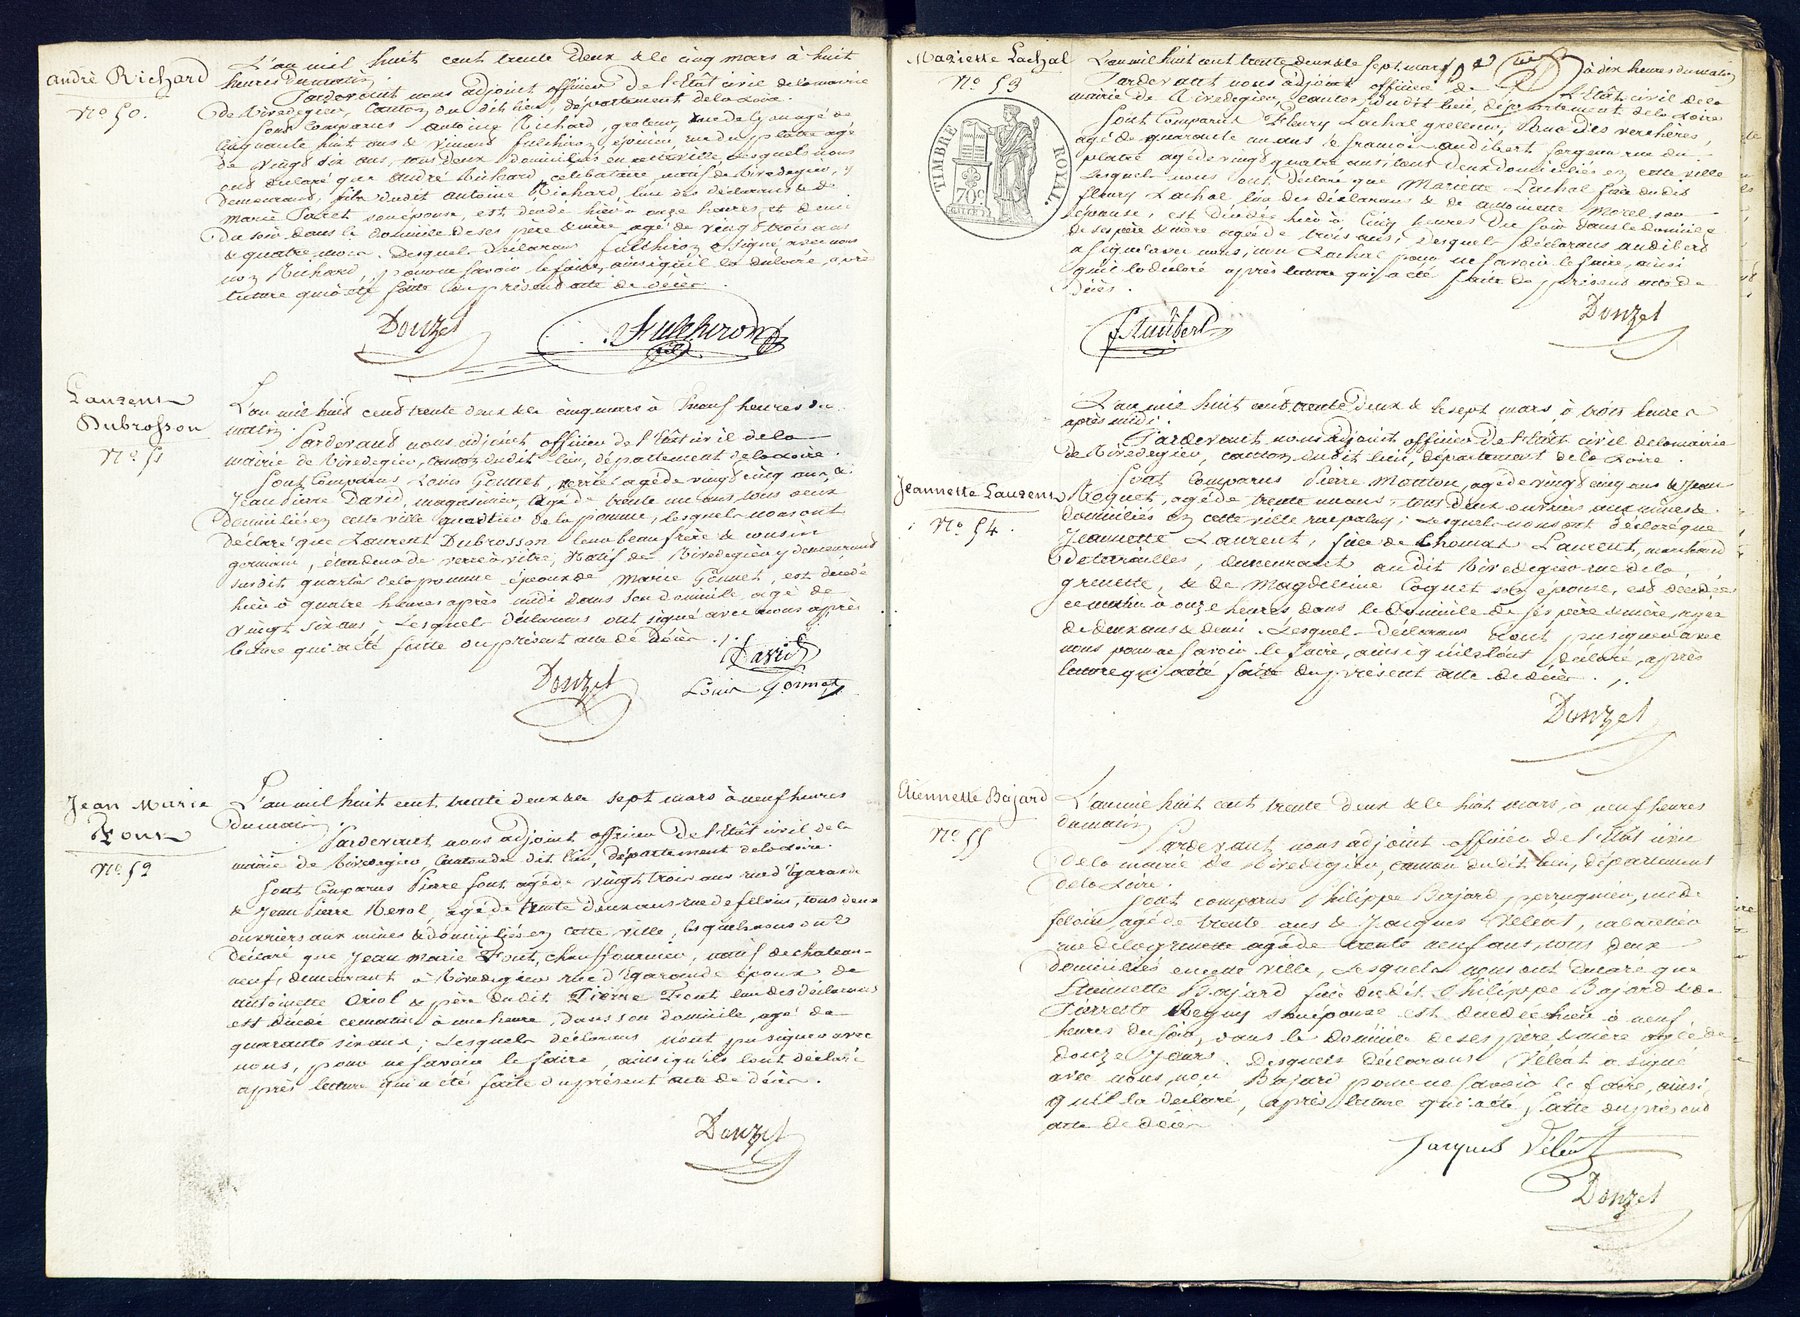 andré Richard
No 50.
L'an mil huit cent trente deux & le cinq mars à huit
heures du matin
Pardevant nous adjoint officier de l'Etât civil de la mairie
de Rivedegier, Canton du dit lieu, département de la Loire.
Sont Comparus antoine Richard, rue de Lyon agé de
Cinquante huit ans & fulchiron, épicier, rue du plâtre agé
de vingt six ans, tous deux domiciliés en cette ville, Lesquels nous
ont déclaré que andré Richard, célibataire natif de Rivedegier, y
demeurant, fils du dit antoine Richard, l'un des déclarans & de
Marie son épouse, est decedé hier à onze heures et demie
du soir dans le domicile de ses père & mère, agé de vingt trois ans
& quatre mois. Desquels déclarans fulchiron a signé avec nous
non Richard, pour ne savoir le faire, ainsi qu'il l'a déclaré, après
lecture qui a été faite du présent acte de décès.
Donzel
Fulchiron
Laurent
Dubrosson
No 51
L'an mil huit cent trente deux & le cinq mars à neuf heures du
matin
Pardevant nous adjoint officier de l'Etât civil de la
mairie de Rivedegier, canton du dit lieu, département de la Loire.
Sont Comparus Louis Gonnet, verrier agé de vingt cinq ans, &
Jean Pierre David, magasinier, agé de trente un ans, tous deux
domiciliés en cette ville quartier de la pomme, Lesquels nous ont
déclaré que Laurent Dubrosson leur beau frère & cousin
germain, étendeur de verre à vitre, Natif de Rivedegier y demeurant
susdit quartier de la pomme époux de Marie Gonnet, est decedé
hier à quatre heures après midi dans son domicile agé de
vingt six ans; Lesquels déclarans ont signé avec nous après
lecture qui a été faite du présent acte de Décès.
David
Donzel
Louis Gonnet
Jean Marie
Font
No 52
L'an mil huit cent trente deux & le sept mars à neuf heures
du matin
Pardevant nous adjoint officier de l'Etât civil de la
mairie de Rivedegier, Canton du dit lieu, département de la Loire.
Sont Comparus Pierre font, agé de vingt trois ans rue d'Egarande
& Jean Pierre agé de trente deux ans rue de feloin, tous deux
ouvriers aux mines & domiciliés en cette ville, lesquels nous ont
déclaré que Jean Marie Font, chauffournier, natif de chateau-
neuf, demeurant à Rivedegier rue d'Egarande époux de
antoinette Oriol & père du dit Pierre Font l'un des déclarans
est décédé ce matin à une heure, dans son domicile, agé de
quarante six ans; Lesquels déclarans n'ont pu signer avec
nous, pour ne savoir le faire, ainsi qu'ils l'ont déclaré
après lecture qui a été faite du présent acte de décès.
Donzel
Mariette Lachal
No 53
TIMBRE ROYAL.
70c
L'an mil huit cent trente deux & le sept mars à dix heures du matin
Pardevant nous adjoint officier de l'Etât civil de la
mairie de Rivedegier, Canton du dit lieu, département de la Loire
Sont Comparus fleury Lachal grelleur, Rue des verchères,
agé de quarante un ans & françois audibert forgeur rue du
platre agé de vingt quatre ans, tous deux domiciliés en cette ville
Lesquels nous ont déclaré que Mariette Lachal fille du dit
fleury Lachal, l'un des déclarans & de antoinette Morel son
épouse, est décédée hier à cinq heures du soir dans le domicile
de ses père & mère agée de trois ans, Desquels déclarans audibert
a signé avec nous, non Lachal pour ne savoir le faire, ainsi
qu'il l'a déclaré après lecture qui a été faite du présent acte de
Décès.
Donzel
f Audibert
Jeannette Laurent
No 54.
L'an mil huit cent trente deux & le sept mars à trois heures
après midi.
Pardevant nous adjoint officier de l'Etât civil de la mairie
de Rivedegier, canton du dit lieu, département de la Loire.
Sont Comparus Pierre Mouton, agé de vingt cinq ans & Jean
Roquet, agé de trente un ans, tous deux ouvriers aux mines &
domiciliés en cette ville rue paluy; Lesquels nous ont déclaré que
Jeannette Laurent, fille de Thomas Laurent, marchand
de demeurant au dit Rivedegier rue de la
grenette, & de Magdeleine Coquet son épouse, est décédée
ce matin à onze heures dans le domicile de ses père & mère, agée
de deux ans & demi. Lesquels déclarans n'ont pu signer avec
nous pour ne savoir le faire, ainsi qu'ils l'ont déclaré, après
lecture qui a été faite du présent acte de décès.
Donzel
Etiennette Bajard
No 55
L'an mil huit cent trente deux & le huit mars, à neuf heures
du matin
Pardevant nous adjoint officier de l'Etât civil
de la mairie de Rivedegier, canton du dit lieu, département
de la Loire.
Sont comparus Philippe Bajard, perruquier, rue de
feloin agé de trente ans & Jacques Véléat, cabaretier
rue de la grenette agé de trente neuf ans, tous deux
domiciliés en cette ville, Lesquels nous ont déclaré que
Etiennette Bajard fille du dit Philippe Bajard & de
Pierrette Reguy son épouse est décédée hier à neuf
heures du soir, dans le domicile de ses père & mère agée de
douze jours. Desquels déclarans Véléat a signé
avec nous, non Bajard pour ne savoir le faire, ainsi
qu'il l'a déclaré, après lecture qui a été faite du présent
acte de décès
Jacques Véléat
Donzel